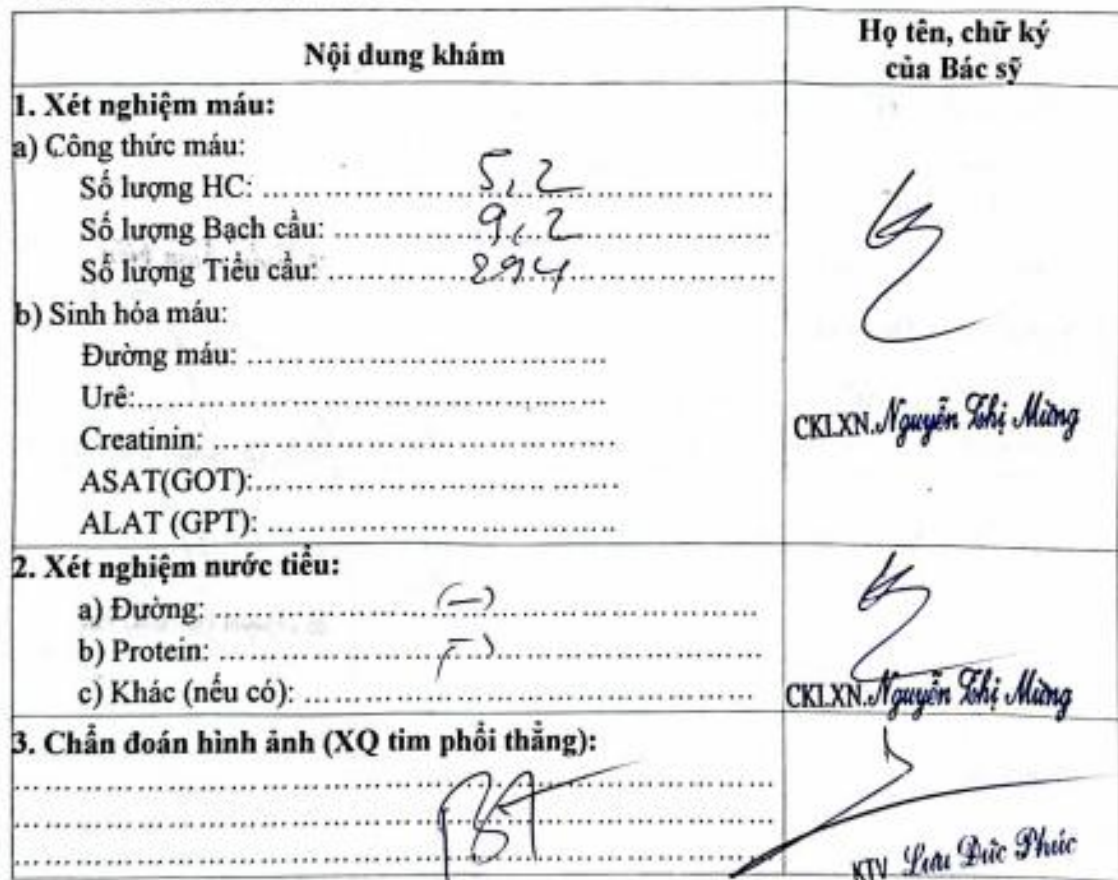 Nội dung khám
Họ tên, chữ ký
của Bác sỹ
1. Xét nghiệm máu:
a) Công thức máu:
Số lượng HC: ........ 5,2 ........
Số lượng Bạch cầu: ........ 9,2 ........
Số lượng Tiểu cầu: ........ 294 ........
b) Sinh hóa máu:
Đường máu: ........
Urê:........
Creatinin: ........
ASAT(GOT):........
ALAT (GPT): ........
CKI.XN. Nguyễn Thị Mừng
2. Xét nghiệm nước tiểu:
a) Đường: ........ (-) ........
b) Protein: ........ (-) ........
c) Khác (nếu có): ........
CKI.XN. Nguyễn Thị Mừng
3. Chẩn đoán hình ảnh (XQ tim phổi thẳng):
BT
KTV Lưu Đức Phúc